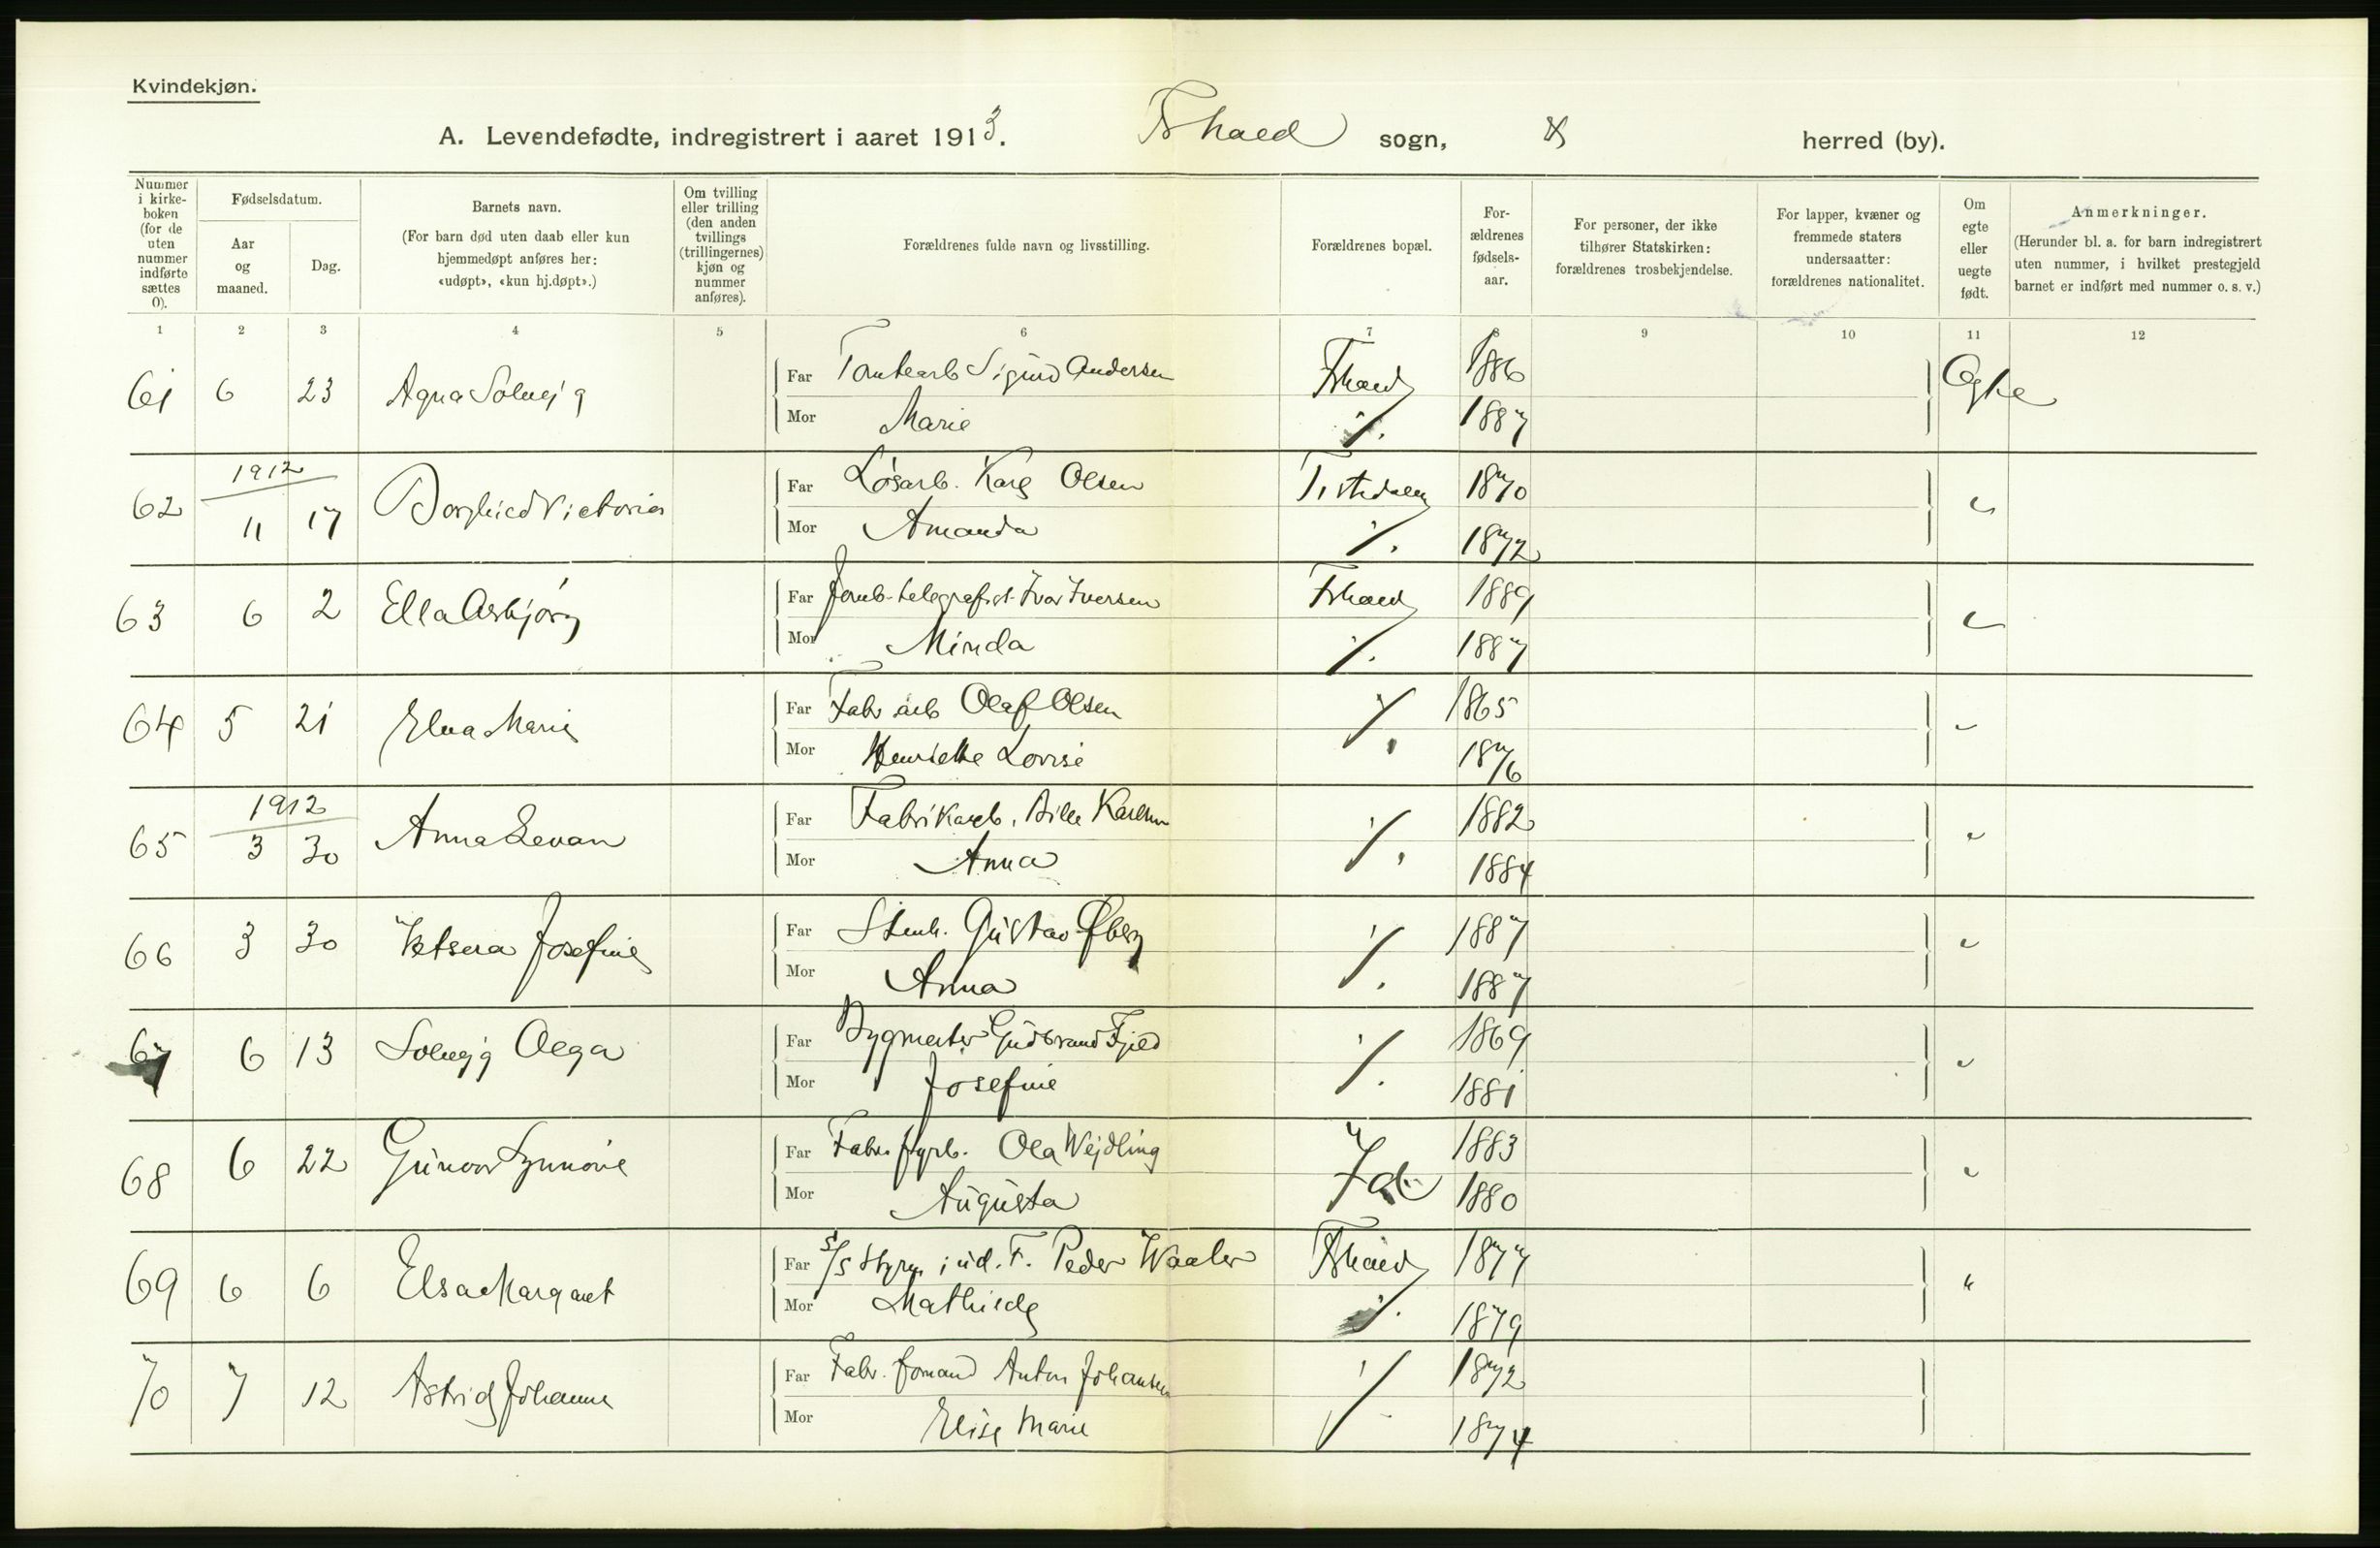 Kvindekjøn.
A. Levendefødte, indregistrert i aaret 1913. Frhald sogn, herred (by).
Nummer i kirke-boken (for de uten nummer indførte sættes 0).
Fødselsdatum.
Aar og maaned.
Dag.
Barnets navn.
(For barn død uten daab eller kun hjemmedøpt anføres her: «udøpt», «kun hj.døpt».)
Om tvilling eller trilling (den anden tvillings (trillingernes) kjøn og nummer anføres).
Forældrenes fulde navn og livsstilling.
Forældrenes bopæl.
For-ældrenes fødsels-aar.
For personer, der ikke tilhører Statskirken: forældrenes trosbekjendelse.
For lapper, kvæner og fremmede staters undersaatter: forældrenes nationalitet.
Om egte eller uegte født.
Anmerkninger.
(Herunder bl. a. for barn indregistrert uten nummer, i hvilket prestegjeld barnet er indført med nummer o. s. v.)
1 2 3 4 5 6 7 8 9 10 11 12
61 6 23 Agna Solveig Far Tomtearb Sigurd Andersen Frhald 1886 Egte
Mor Marie ⁒ 1887
62 1912 11 17 Borghild Victoria Far Løsarb. Karl Olsen Tistedalen 1870 "
Mor Amanda ⁒ 1872
63 6 2 Ella Asbjørg Far Jernb. telegrafist Ivar Iversen Frhald 1889 "
Mor Minda ⁒ 1887
64 5 21 Elna Marie Far Fabr arb Olaf Olsen ⁒ 1865 "
Mor Henriette Lovise 1876
65 1912 3 30 Anna Far Fabrikarb. Karlsen ⁒ 1882 "
Mor Anna 1884
66 3 30 Josefine Far Stenh. Gustav Øberg ⁒ 1887 "
Mor Anna 1887
67 6 13 Solveig Olga Far Bygmester Gudbrand Fjeld ⁒ 1869 "
Mor Josefine 1881
68 6 22 Gunvor Synnøve Far Fabr. fyrb. Ola Wejdling Id 1883 "
Mor Augusta 1880
69 6 6 Elsa Margaret Far S/S Styrm i ud. F. Peder Waaler Frhald 1877 "
Mor Mathilde ⁒ 1879
70 7 12 Astrid Johanne Far Fabr. formand Anton Johansen ⁒ 1872
Mor Elise Marie 1874